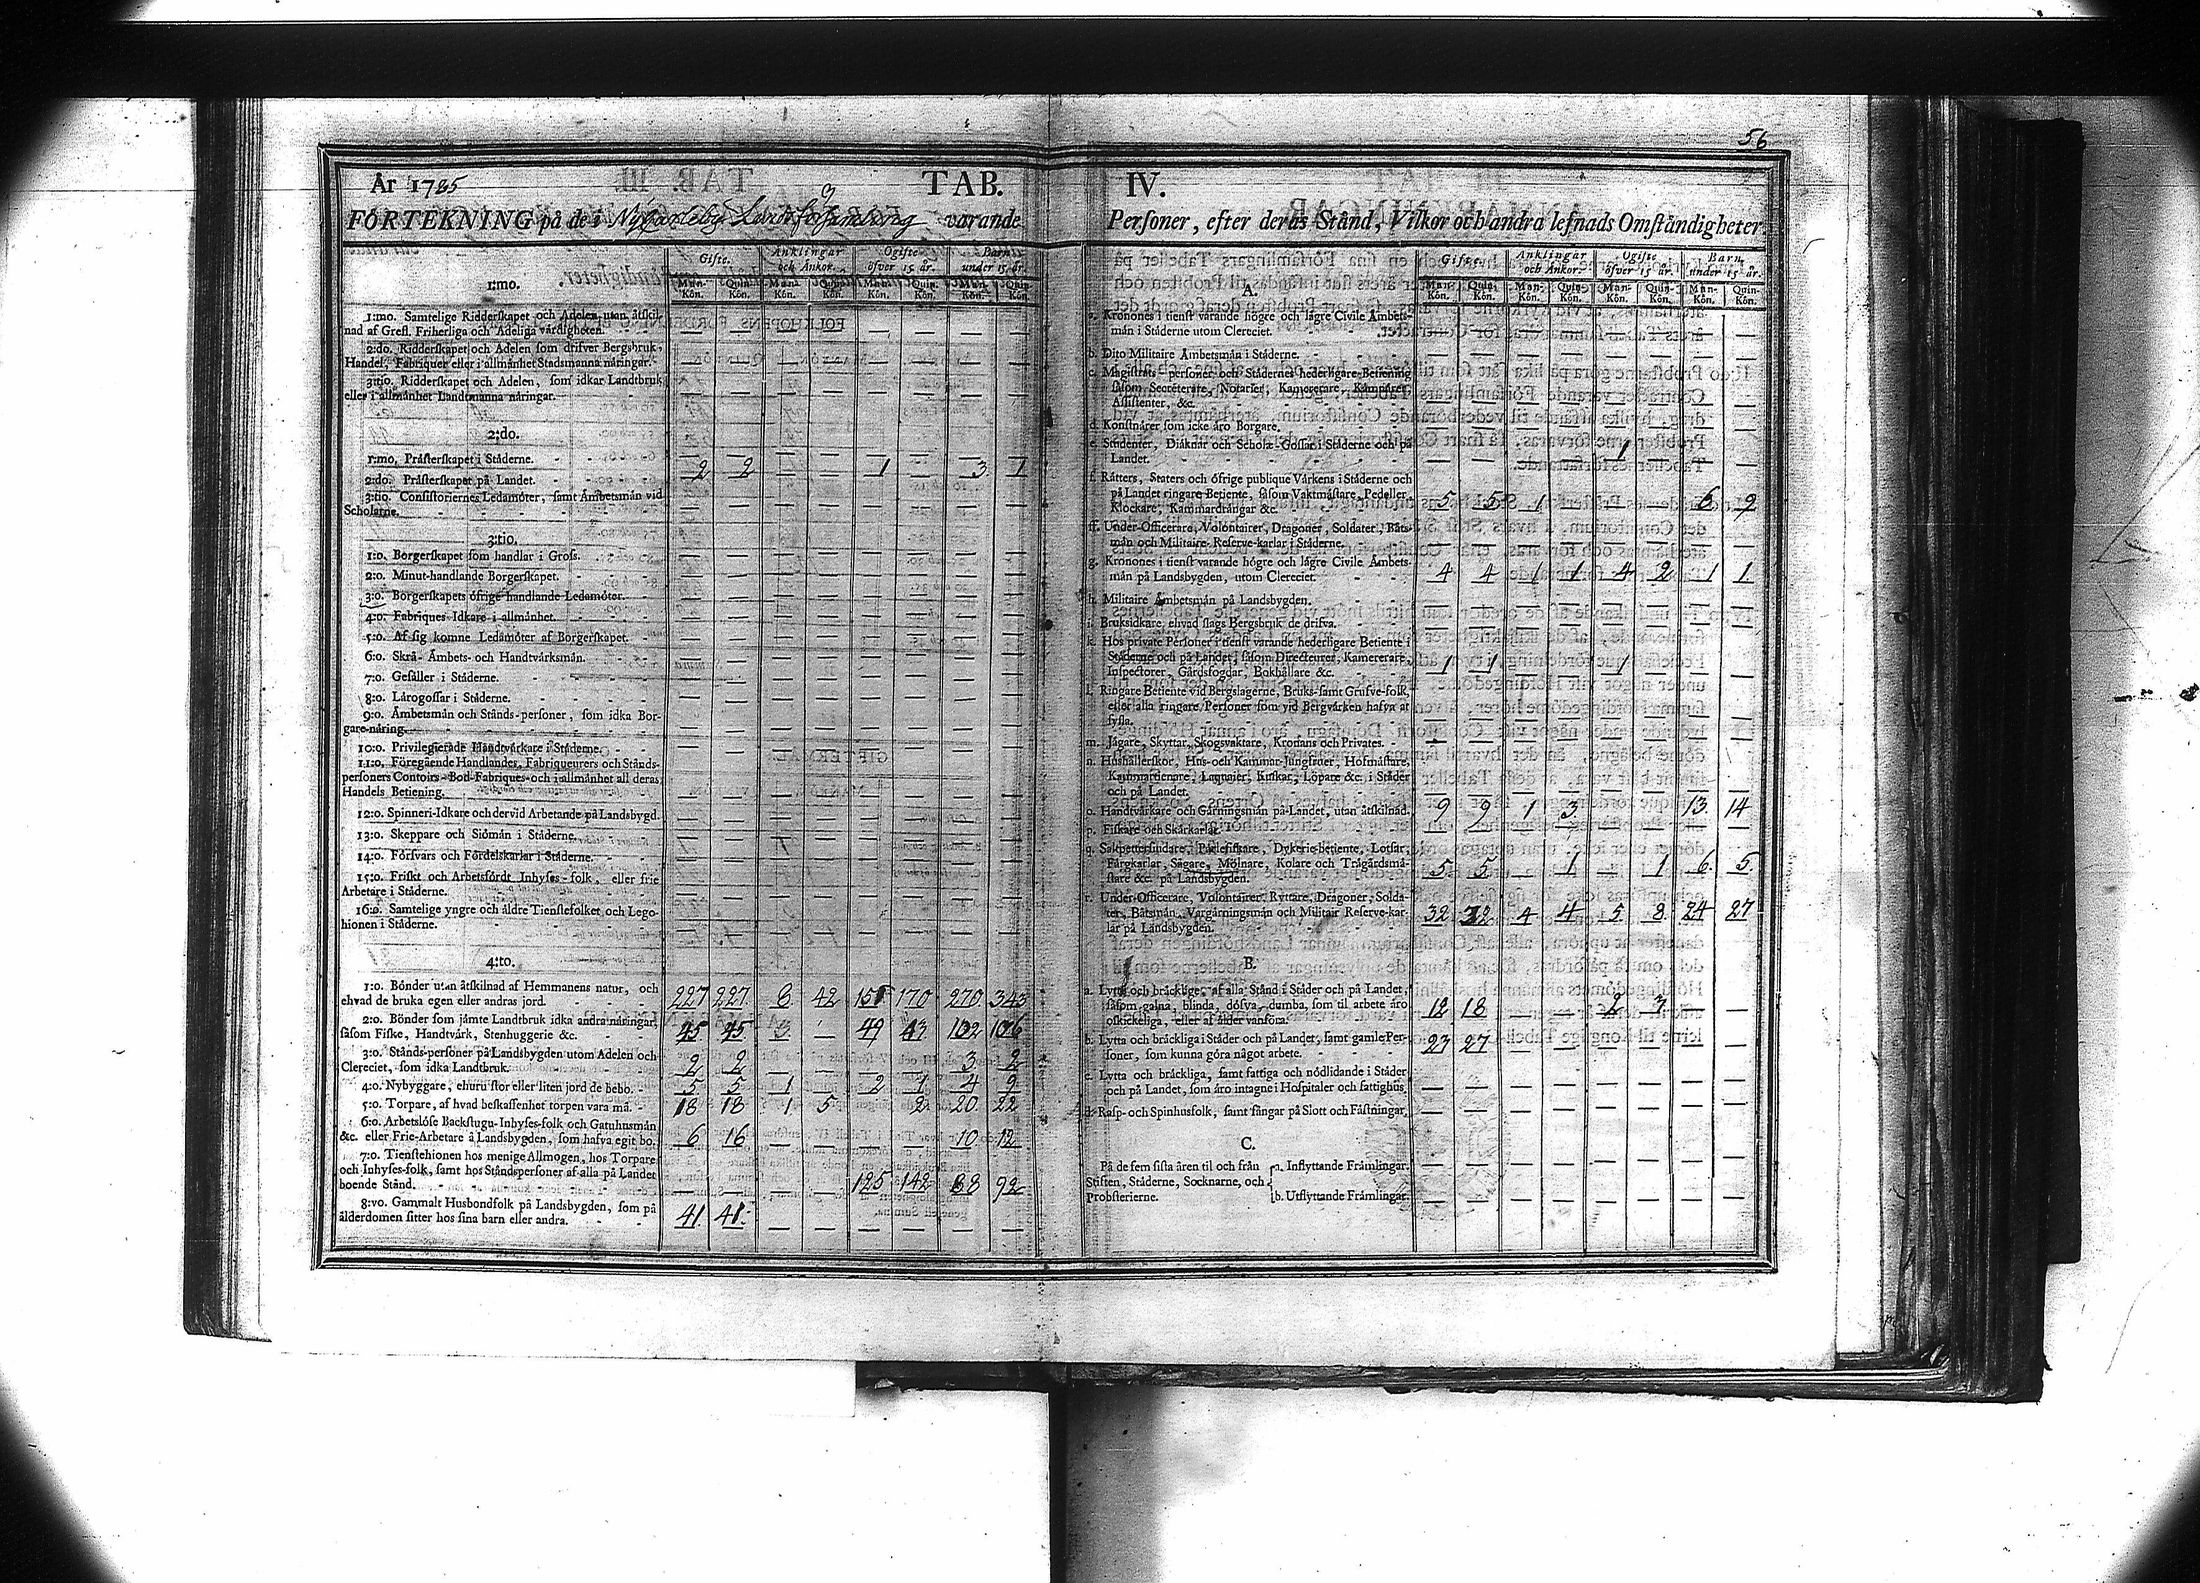 56
År 1785 TAB. IV.
FÖRTEKNING på de i Nykarleby Lands församling varande Personer, efter deras Stånd, Vilkor och andra lefnads Omståndigheter.
Gifte. Anklingar och Ånkor. Ogifte öfver 15 år. Barn under 15 år.
Man-Kön. Quin-Kön. Man-Kön. Quin-Kön. Man-Kön. Quin-Kön. Man-Kön. Quin-Kön.
1:mo.
1:mo. Samtelige Ridderskapet och Adelen, utan åtskil-
nad af Grefl. Friherliga och Adeliga vårdigheten. — — — — — — — —
2:do. Ridderskapet och Adelen som drifver Bergsbruk,
Handel, Fabriquer eller i allmånhet Stadsmanna nåringar. — — — — — — — —
3:tio. Ridderskapet och Adelen, som idkar Landtbruk
eller i allmånhet Landtmanna nåringar. — — — — — — — —
2:do.
1:mo. Pråsterskapet i Ståderne. — — — — — — — —
2:do. Pråsterskapet på Landet. 2 2 — — 1 — 3 1
3:tio. Consistoriernes Ledamöter, samt Åmbetsmån vid
Scholarne. — — — — — — — —
3:tio.
1:o. Borgerskapet som handlar i Gross. — — — — — — — —
2:o. Minut-handlande Borgerskapet. — — — — — — — —
3:o. Borgerskapets öfrige handlande Ledamöter. — — — — — — — —
4:o. Fabriques-Idkare i allmånhet. — — — — — — — —
5:o. Af sig komne Ledamöter af Borgerskapet. — — — — — — — —
6:o. Skrå- Åmbets- och Handtvårksmån. — — — — — — — —
7:o. Gesåller i Ståderne. — — — — — — — —
8:o. Lårogossar i Ståderne. — — — — — — — —
9:o. Åmbetsmån och Stånds-personer, som idka Bor-
gare-nåring. — — — — — — — —
10:o. Privilegierade Handtvårkare i Ståderne. — — — — — — — —
11:o. Föregående Handlandes, Fabriqueurers och Stånds-
personers Contoirs- Bod- Fabriques- och i allmånhet all deras
Handels Betiening. — — — — — — — —
12:o. Spinneri-Idkare och dervid Arbetande på Landsbygd. — — — — — — — —
13:o. Skeppare och Siömån i Ståderne. — — — — — — — —
14:o. Försvars och Fördelskarlar i Ståderne. — — — — — — — —
15:o. Friskt och Arbetsfördt Inhyses-folk, eller frie
Arbetare i Ståderne. — — — — — — — —
16:o. Samtelige yngre och åldre Tienstefolket och Lego-
hionen i Ståderne. — — — — — — — —
4:to.
1:o. Bönder utan åtskilnad af Hemmanens natur, och
ehvad de bruka egen eller andras jord. 227 227 8 42 151 170 270 343
2:o. Bönder som jämte Landtbruk idka andra nåringar,
såsom Fiske, Handtvårk, Stenhuggerie &c. 45 45 3 — 49 43 102 106
3:o. Stånds-personer på Landsbygden utom Adelen och
Clereciet, som idka Landtbruk. 2 2 — — — — 3 2
4:o. Nybyggare, ehuru stor eller liten jord de hebo. 5 5 1 — 2 1 4 9
5:o. Torpare, af hvad beskaffenhet torpen vara må. 18 18 1 5 2 20 22
6:o. Arbetslöse Backstugu- Inhyses-folk och Gatuhusmån
&c. eller Frie-Arbetare å Landsbygden, som hafva egit bo. 6 16 — — — — 10 12
7:o. Tienstehionen hos menige Allmogen, hos Torpare
och Inhyses-folk, samt hos Ståndspersoner af alla på Landet
boende Stånd. — — — — 125 142 68 92
8:vo. Gammalt Husbondfolk på Landsbygden, som på
ålderdomen sitter hos sina barn eller andra. 41 41 — — — — — —
Gifte. Anklingar och Ånkor. Ogifte öfver 15 år. Barn under 15 år.
Man-Kön. Quin-Kön. Man-Kön. Quin-Kön. Man-Kön. Quin-Kön. Man-Kön. Quin-Kön.
A.
a. Kronones i tienst varande högre och lågre Civile Åmbets-
mån i Ståderne utom Clereciet. — — — — — — — —
b. Dito Militaire Åmbetsmån i Ståderne. — — — — — — — —
c. Magistrats personer och Stådernes hederligare Betiening
såsom Secreterare, Notarier, Kamererare, Kåmnårer,
Assistenter, &c. — — — — — — — —
d. Konstnårer som icke åro Borgare. — — — — — — — —
e. Studenter, Diåknar och Scholæ-Gossar i Ståderne och på
Landet. — — — — 1 — — —
f. Råtters, Staters och öfrige publique Vårkens i Ståderne och
på Landet ringare Betiente, såsom Vaktmåstare, Pedeller,
Klockare, Kammardrångar &c. 5 5 1 — — — 6 9
ff. Under-Officerare, Volontairer, Dragoner, Soldater, Båts-
mån och Militaire Reserve-karlar i Ståderne. — — — — — — — —
g. Kronones i tienst varande högre och lågre Civile Åmbets-
mån på Landsbygden, utom Clereciet. 4 4 1 1 4 2 1 1
h. Militaire Åmbetsmån på Landsbygden. — — — — — — — —
i. Bruksidkare, ehvad slags Bergsbruk de drifva. — — — — — — — —
k. Hos private Personer i tienst varande hederligare Betiente i
Ståderne och på Landet, såsom Directeurer, Kamererare,
Inspectorer, Gårdsfogdar, Bokhållare &c. 1 1 — — 1 — — —
l. Ringare Betiente vid Bergslagerne, Bruks- samt Grufve-folk,
eller alla ringare Personer som vid Bergvårken hafva at
sysla. — — — — — — — —
m. Jågare, Skyttar, Skogsvaktare, Kronans och Privates. — — — — — — — —
n. Hushållerskor, Hus- och Kammar-Jungfruer, Hofmåstare,
Kammardenare, Laquaier, Kuskar, Löpare &c. i Ståder
och på Landet. — — — — — — — —
o. Handtvårkare och Gårningsmån på Landet, utan åtskilnad. 9 9 1 3 — — 13 14
p. Fiskare och Skårkarlar. — — — — — — — —
q. Salpettersiudare, Pårlefiskare, Dykerie-betiente, Lotsar,
Fårgkarlar, Sågare, Mölnare, Kolare och Trågårdsmå-
stare &c. på Landsbygden. 5 5 — 1 — 1 6 5
r. Under-Officerare, Volontairer, Ryttare, Dragoner, Solda-
ter, Båtsmån, Vargåringsmån och Militair Reserve-kar-
lar på Landsbygden. 32 32 4 4 5 8 24 27
B.
a. Lytta och bråcklige, af alla Stånd i Ståder och på Landet,
såsom galna, blinda, döfva, dumba, som til arbete åro
oskickeliga, eller af ålder vanföra. 12 18 — — 2 3 — —
b. Lytta och bråckliga i Ståder och på Landet, samt gamle Per-
soner, som kunna göra något arbete. 23 27 — — — — — —
c. Lytta och bråckliga, samt fattiga och nödlidande i Ståder
och på Landet, som åro intagne i Hospitaler och fattighus. — — — — — — — —
d. Rasp- och Spinhusfolk, samt fångar på Slott och Fåstningar. — — — — — — — —
C.
På de fem sista åren til och från
Stiften, Ståderne, Socknarne, och
Probsterierne.
a. Inflyttande Fråmlingar. — — — — — — — —
b. Utflyttande Fråmlingar. — — — — — — — —